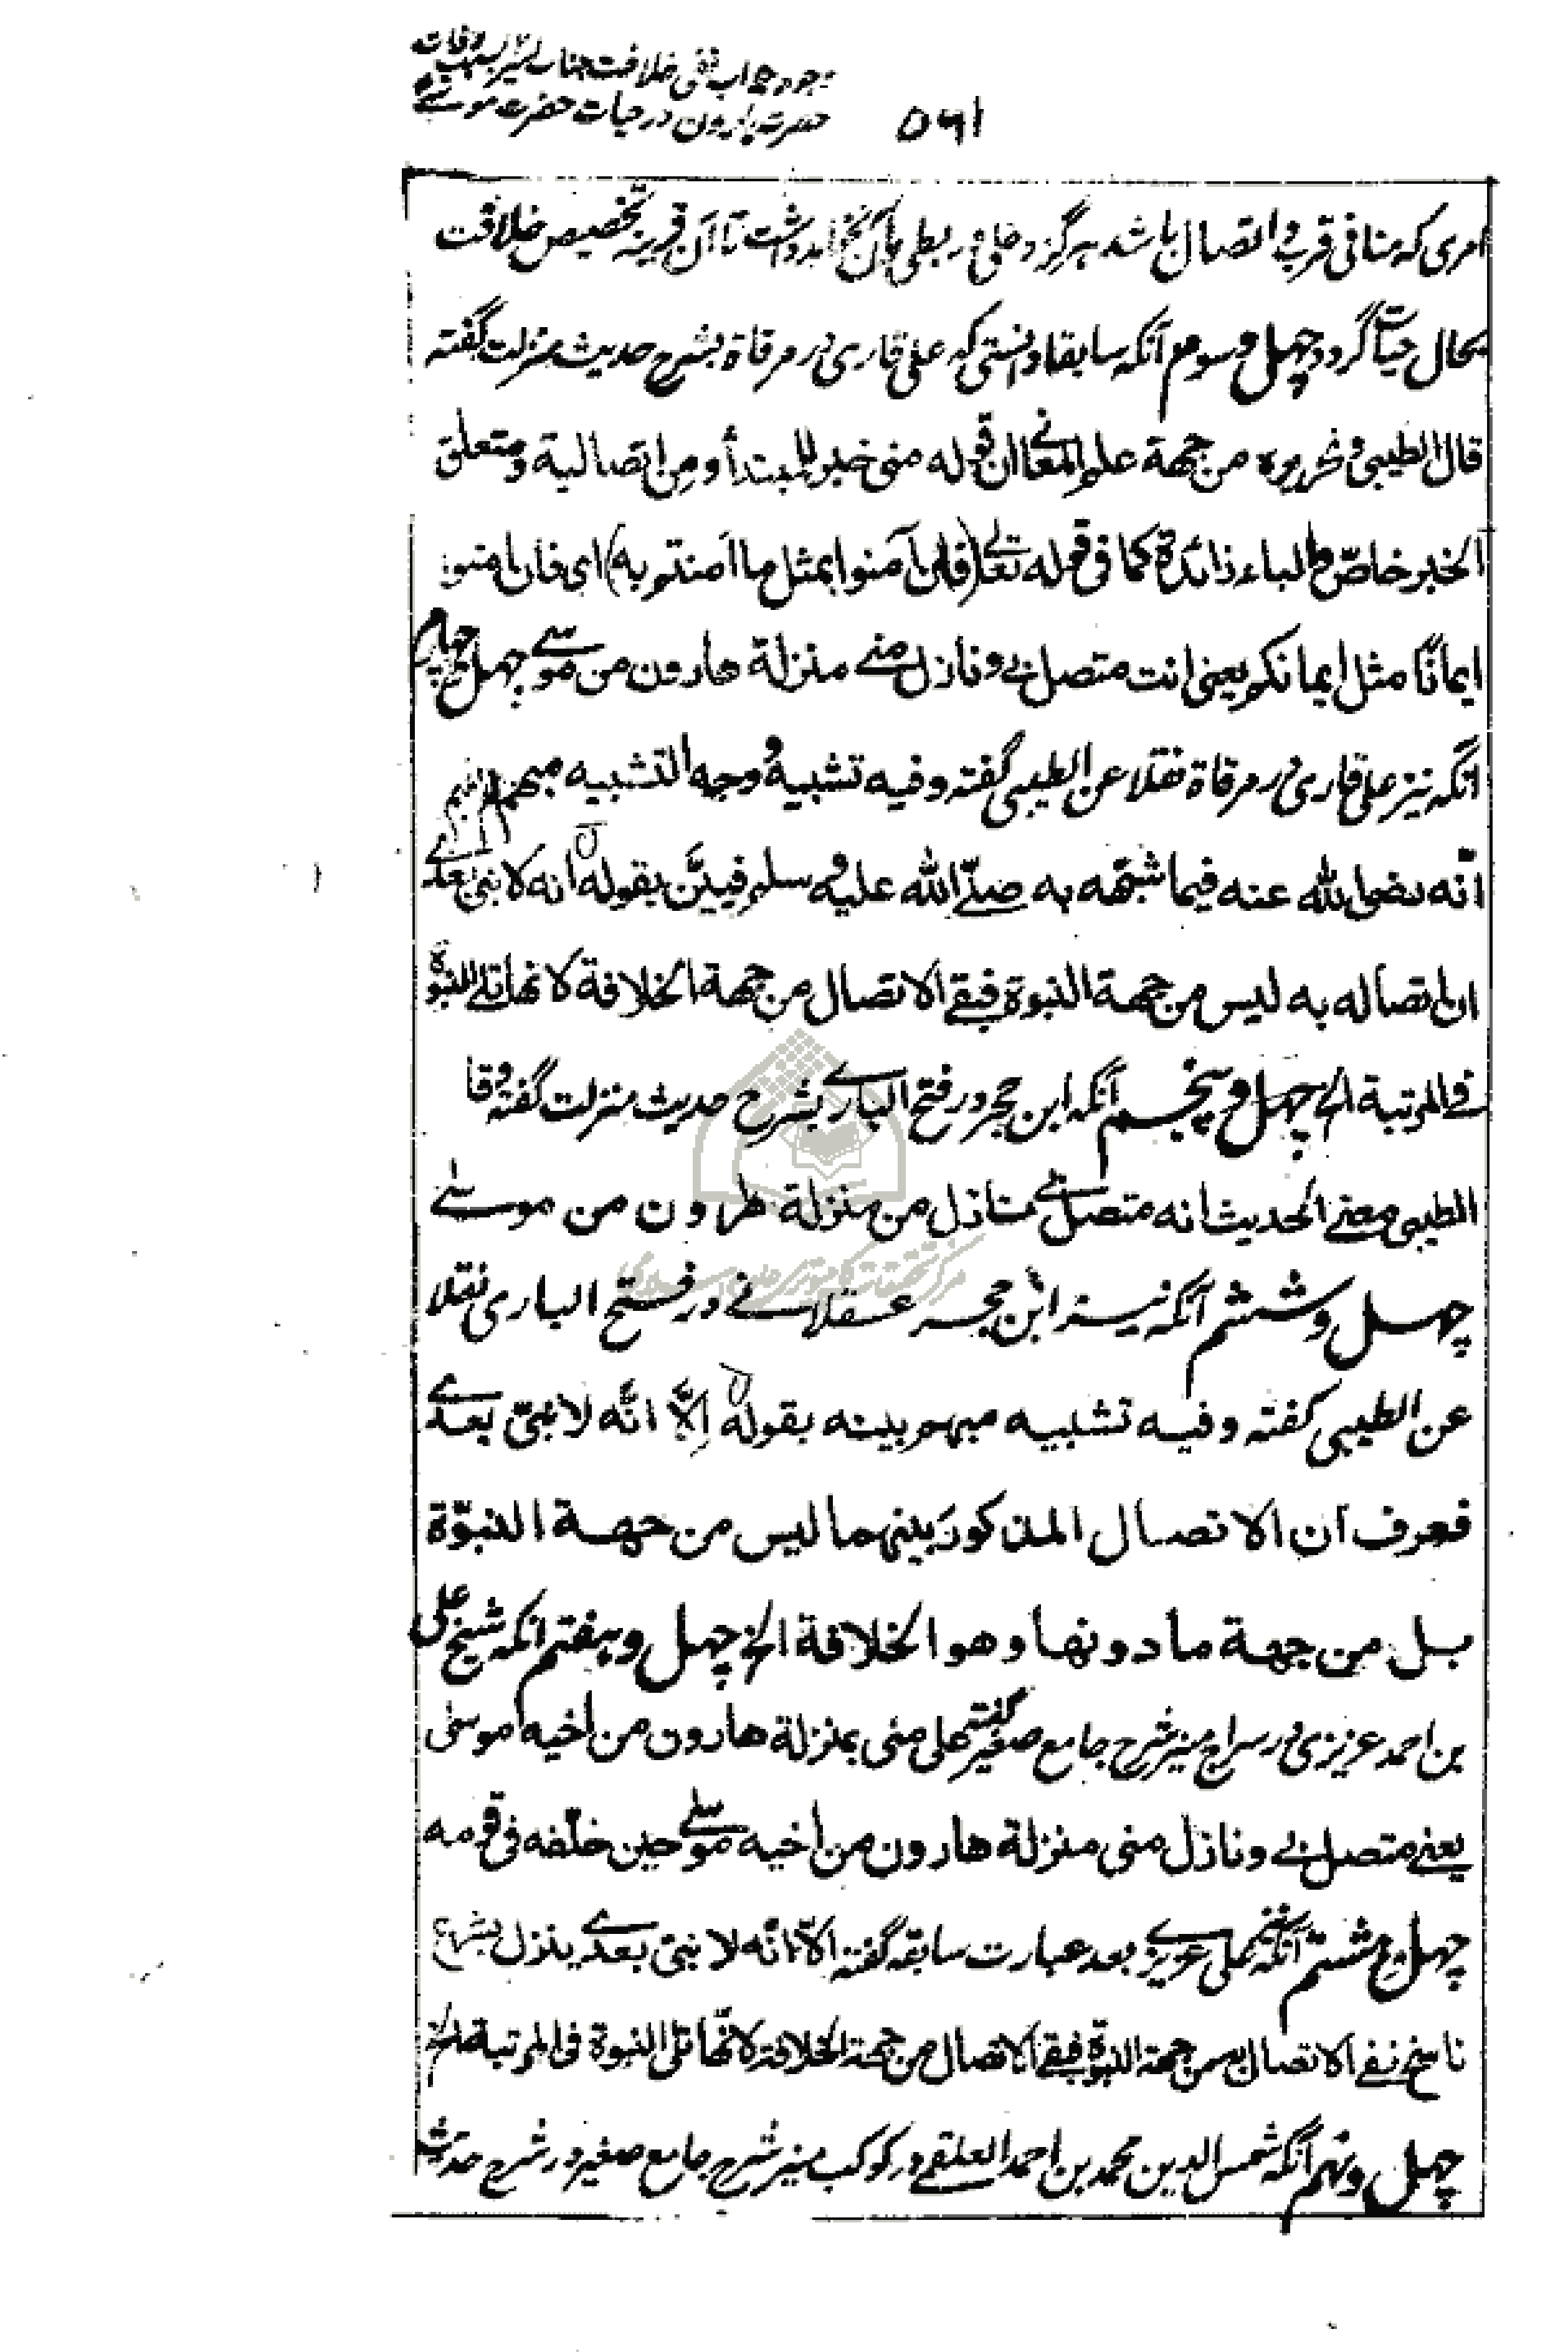 وجوه جواب نفی خلافت جناب امیر بسبب وفات
حضرت هارون در حیات حضرت موسی
۵۶۱
امری که منافی قرب و اتصال باشد هرگز دخلی و ربطی بآن نخواهد داشت تا آن قرینه تخصیص خلافت
بحال حیات گردد چهل و سوم آنکه سابقا دانستی که علی قاری در مرقاة بشرح حدیث منزلت گفته
قال الطیبی و تحریره من جهة علم المعانی ان قوله منی خبر للمبتدأ و من اتصالیة و متعلق
الخبر خاصّ والباء زائدة کما فی قوله تعالی (فان آمنوا بمثل ما آمنتم به) ای فان امنوا
ایمانًا مثل ایمانکم یعنی انت متصل بی و نازل منی منزلة هارون من موسی چهل و چهارم
آنکه نیز علی قاری در مرقاة نقلا عن الطیبی گفته و فیه تشبیهٌ و وجه التشبیه مبهم لم یفهم
انّه رضی الله عنه فیما شبّهه به صلّی الله علیه و سلم فبیّن بقوله انه لا نبی بعدی
ان اتصاله به لیس من جهة النبوة فبقی الاتصال من جهة الخلافة لانها تلی النبوة
فی المرتبة الخ چهل و پنجم آنکه ابن حجر در فتح الباری بشرح حدیث منزلت گفته و قا
الطیبی معنی الحدیث انه متصل بی نازل من منزلة هارون من موسی
چهل و ششم آنکه نیز ابن حجر عسقلانی در فتح الباری نقلا
عن الطیبی گفته و فیه تشبیه مبهم بینه بقوله اِلّا انّه لا نبیّ بعدی
فعرف ان الاتصال المذکور بینهما لیس من جهة النبوّة
بل من جهة ما دونها و هو الخلافة الخ چهل و هفتم آنکه شیخ علی
بن احمد عزیزی در سراج منیر شرح جامع صغیر گفته علی منی بمنزلة هارون من اخیه موسی
یعنی متصل بی و نازل منی منزلة هارون من اخیه موسی حین خلّفه فی قومه
چهل و هشتم آنکه شیخ علی عزیزی بعد عبارت سابقه گفته الّا انّه لا نبیّ بعدی ینزل بشرع
ناسخ نفی الاتصال به من جهة النبوّة فبقی الاتصال من جهة الخلافة لانّها تلی النبوة فی المرتبة الخ
چهل و نهم آنکه شمس الدین محمد بن احمد العلقمی در کوکب منیر شرح جامع صغیر در شرح حدیث